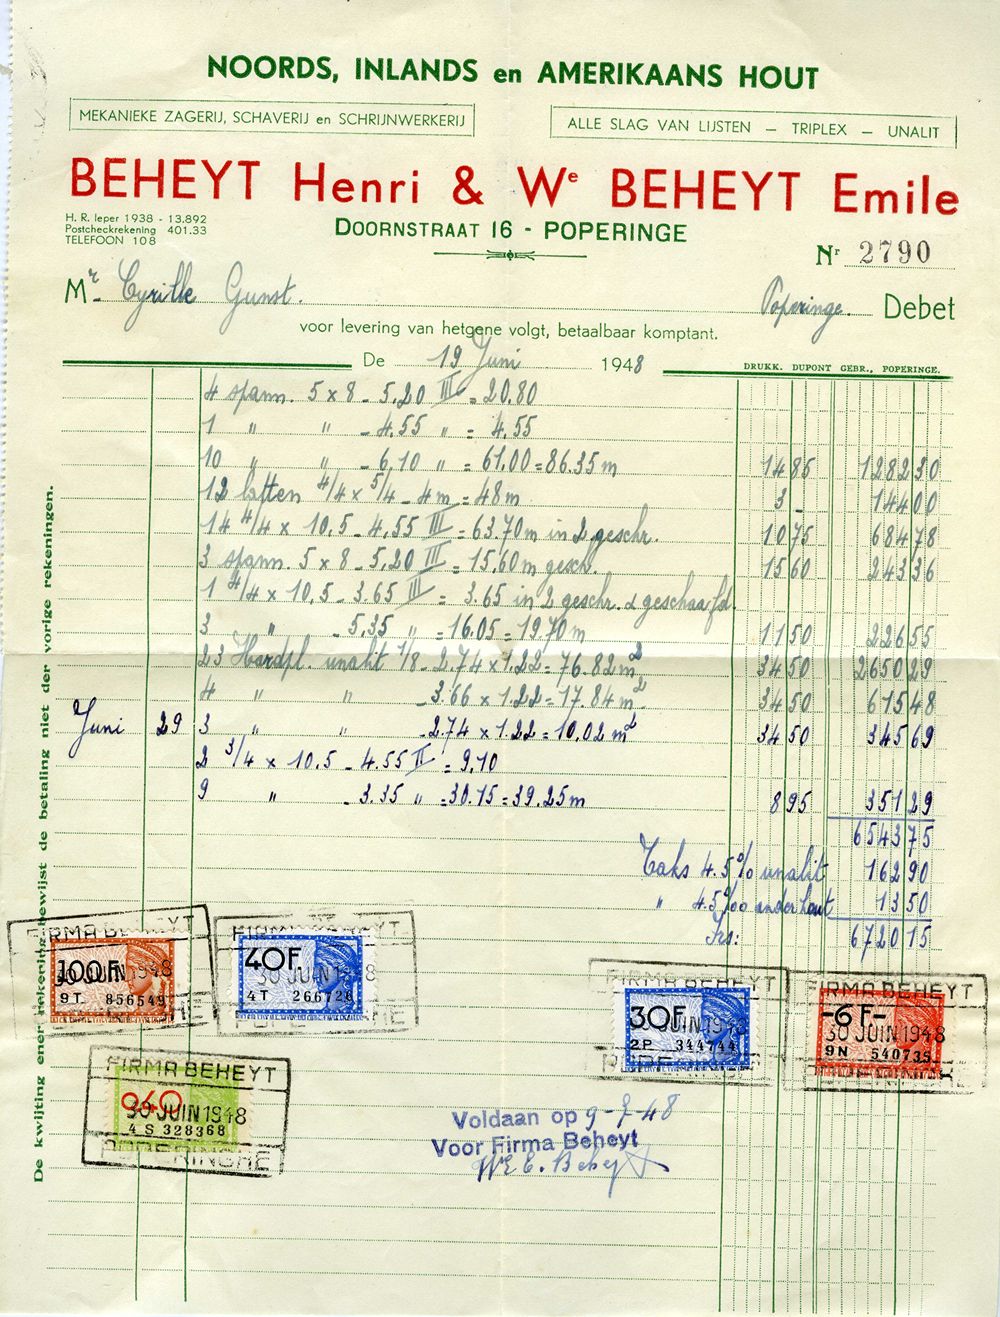 NOORDS, INLANDS en AMERIKAANS HOUT
MEKANIEKE ZAGERIJ, SCHAVERIJ en SCHRIJNWERKERIJ
ALLE SLAG VAN LIJSTEN — TRIPLEX — UNALIT
BEHEYT Henri & We BEHEYT Emile
H. R. Ieper 1938 - 13.892
Postcheckrekening 401.33
TELEFOON 108
DOORNSTRAAT 16 - POPERINGE
Nr 2790
Mr Cyrille Gunst. Poperinge. Debet
voor levering van hetgene volgt, betaalbaar komptant.
De 19 Juni 1948
DRUKK. DUPONT GEBR., POPERINGE.
4 spann. 5 x 8 - 5,20 III = 20.80
1 " " - 4.55 " = 4.55
10 " " - 6,10 " = 61.00 = 86.35 m 14 85 1282 30
12 latten 4/4 x 5/4 - 4 m = 48 m 3 - 144 00
14 4/4 x 10.5 - 4,55 III = 63.70 m in 2 geschr. 10 75 684 78
3 spann. 5 x 8 - 5,20 III = 15,60 m gesch. 15 60 243 36
1 4/4 x 10,5 - 3.65 III = 3.65 in 2 geschr. & geschaafd.
3 " - 5,35 " = 16.05 = 19.70 m 11 50 226 55
23 Hardpl. unalit 1/8 - 2.74 x 1.22 = 76.82 m2 34 50 2650 29
4 " " - 3.66 x 1.22 = 17.84 m2 34 50 615 48
Juni 29 3 " " - 2.74 x 1.22 = 10,02 m2 34 50 345 69
2 3/4 x 10.5 - 4.55 II = 9,10
9 " - 3.35 " = 30.15 = 39.25 m 8 95 351 29
6543 75
Taks 4.5% unalit 162 90
" 4.5%o ander hout 13 50
Frs: 6720 15
De kwijting ener rekening bewijst de betaling niet der vorige rekeningen.
FIRMA BEHEYT
100F
30 JUIN 1948
9T. 856549
POPERINGHE
FIRMA BEHEYT
40F
30 JUIN 1948
4T
POPERINGHE
FIRMA BEHEYT
30F
30 JUIN 1948
2P 344744
POPERINGHE
FIRMA BEHEYT
-6 F-
30 JUIN 1948
9N 540735
POPERINGHE
FIRMA BEHEYT
0,60
30 JUIN 1948
4 S 328368
POPERINGHE
Voldaan op 9-7-48
Voor Firma Beheyt
We E. Beheyt